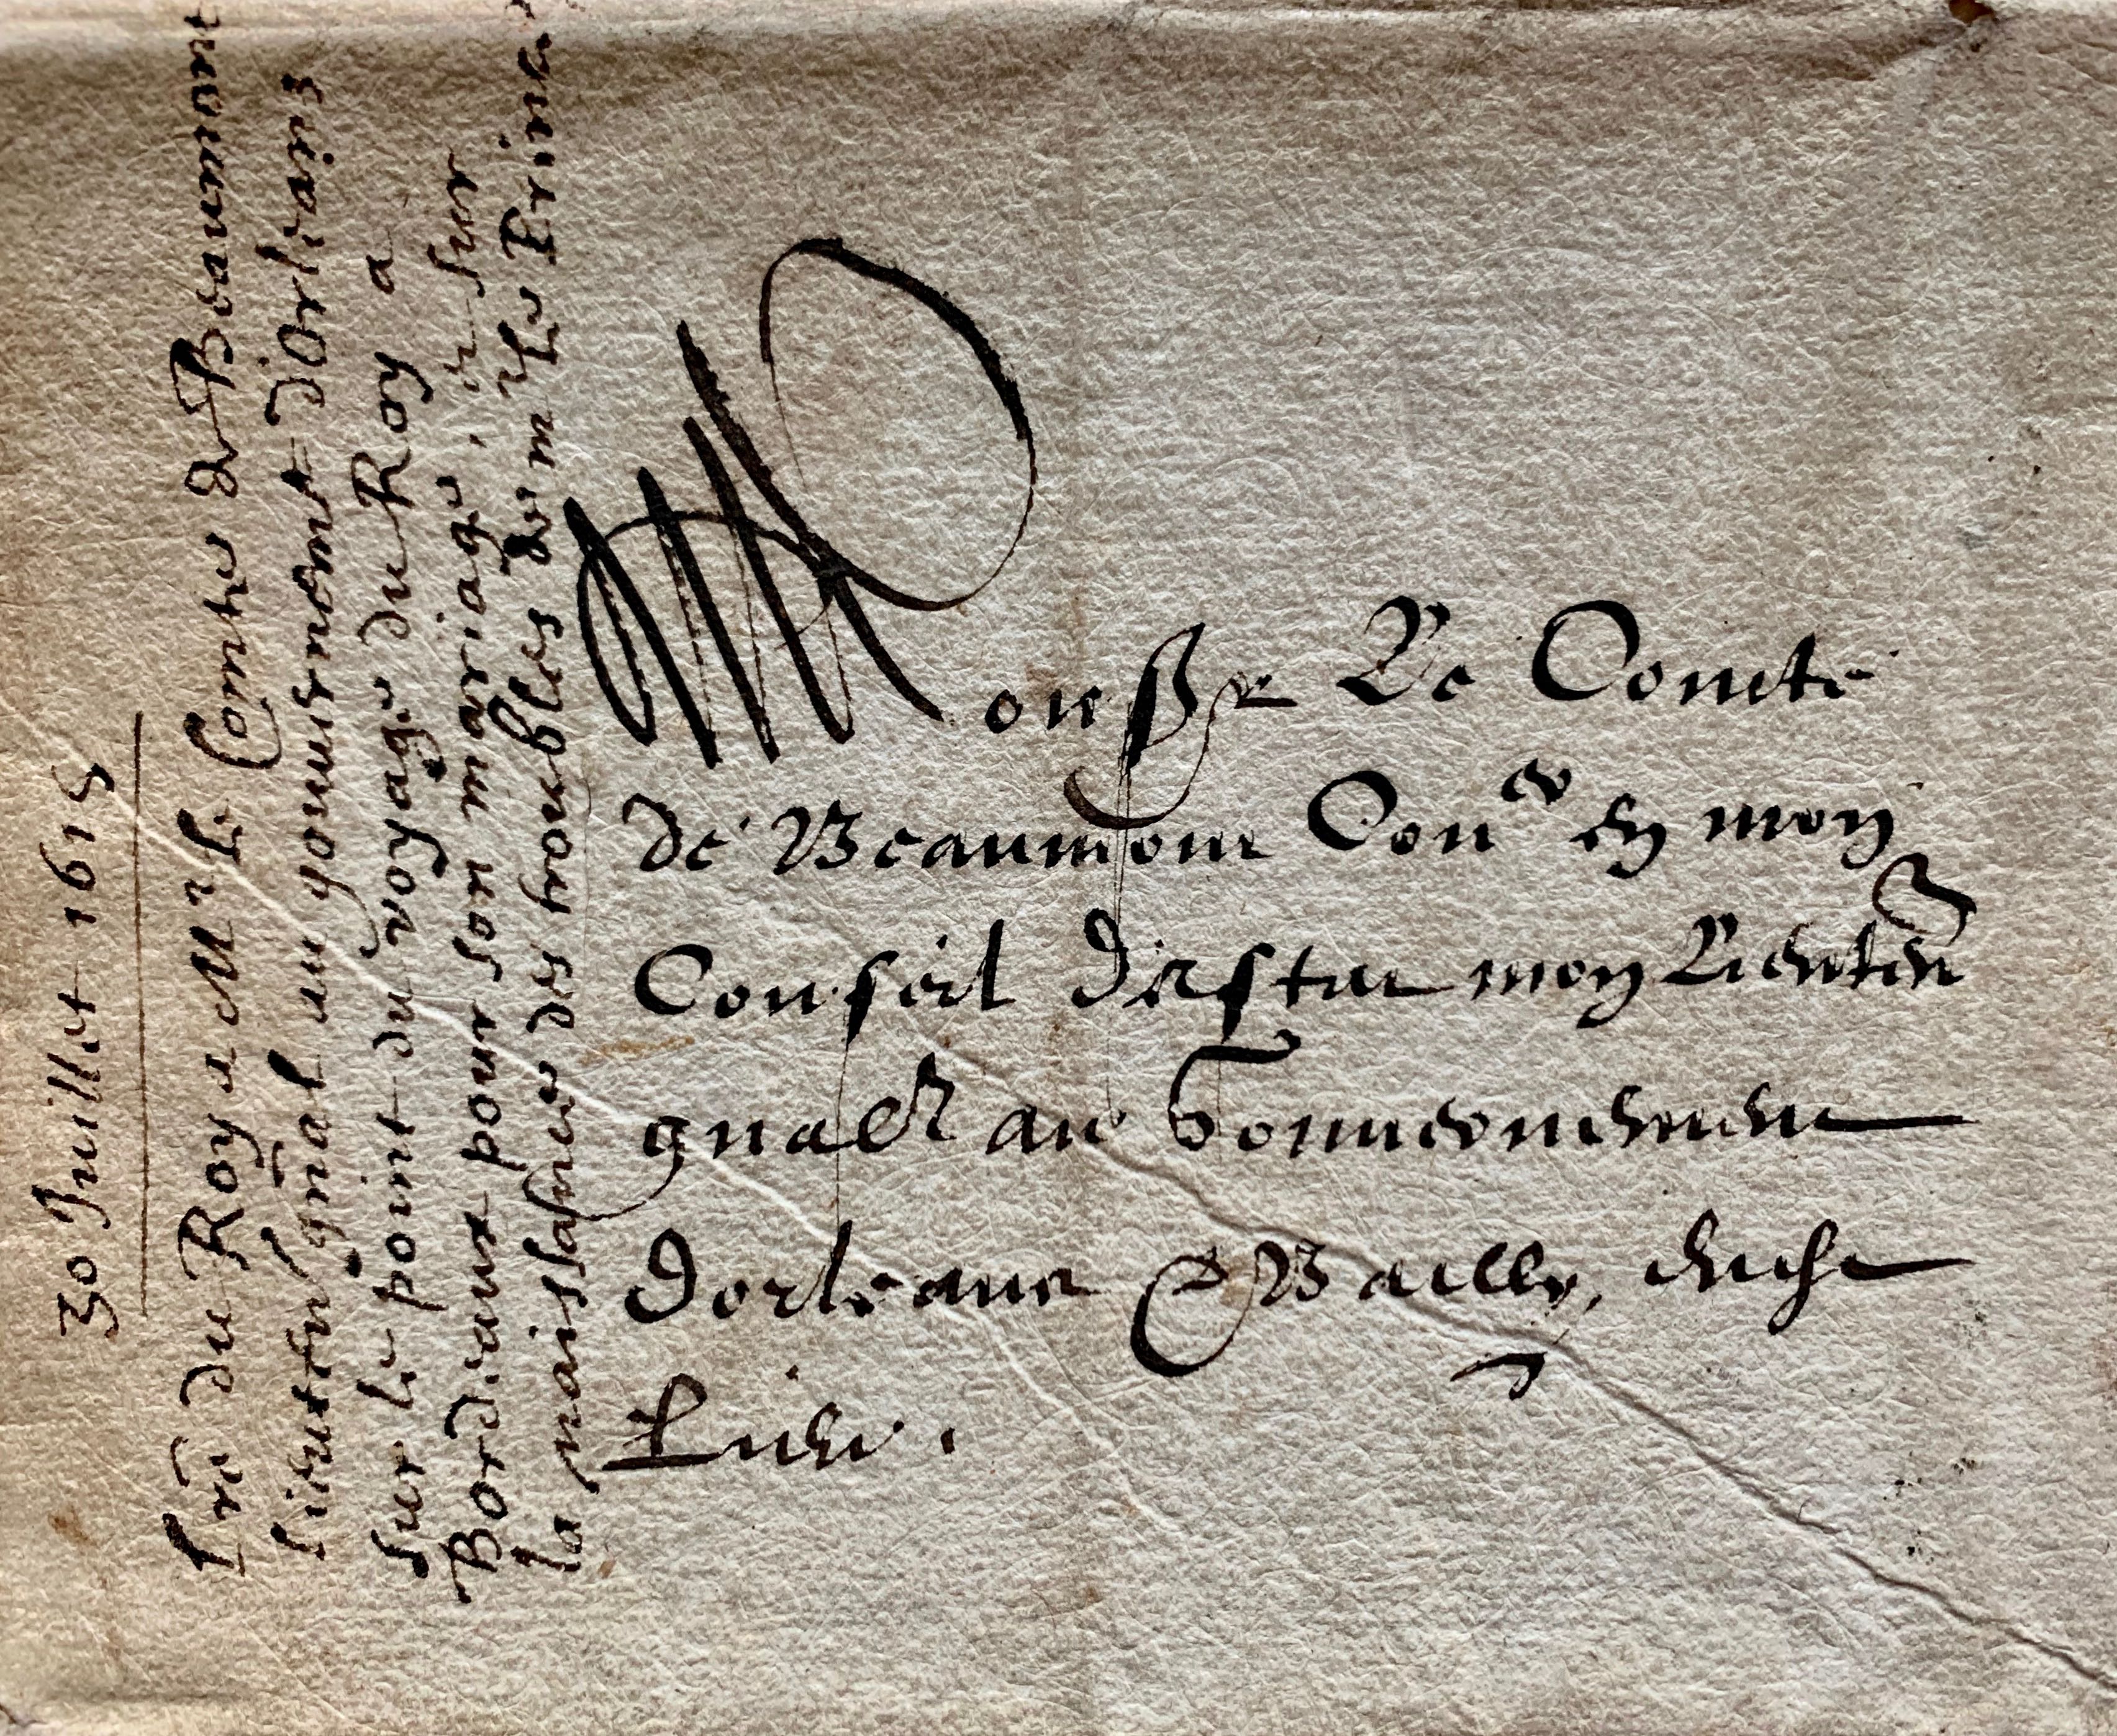 30 Juillet 1615
Lre du Roy a Mr le Comte de Beaumont
Lieuten gñal au gouuernement d'Orleans
sur le point du voyage du Roy a
Bordeaux pour son mariage, & sur
la naissance des troubles de m le Prince
Monsr Le Comte
de Beaumont Coner en mon
Conseil destat mon Lieuten
gnal au Gouuernement
dorleans &